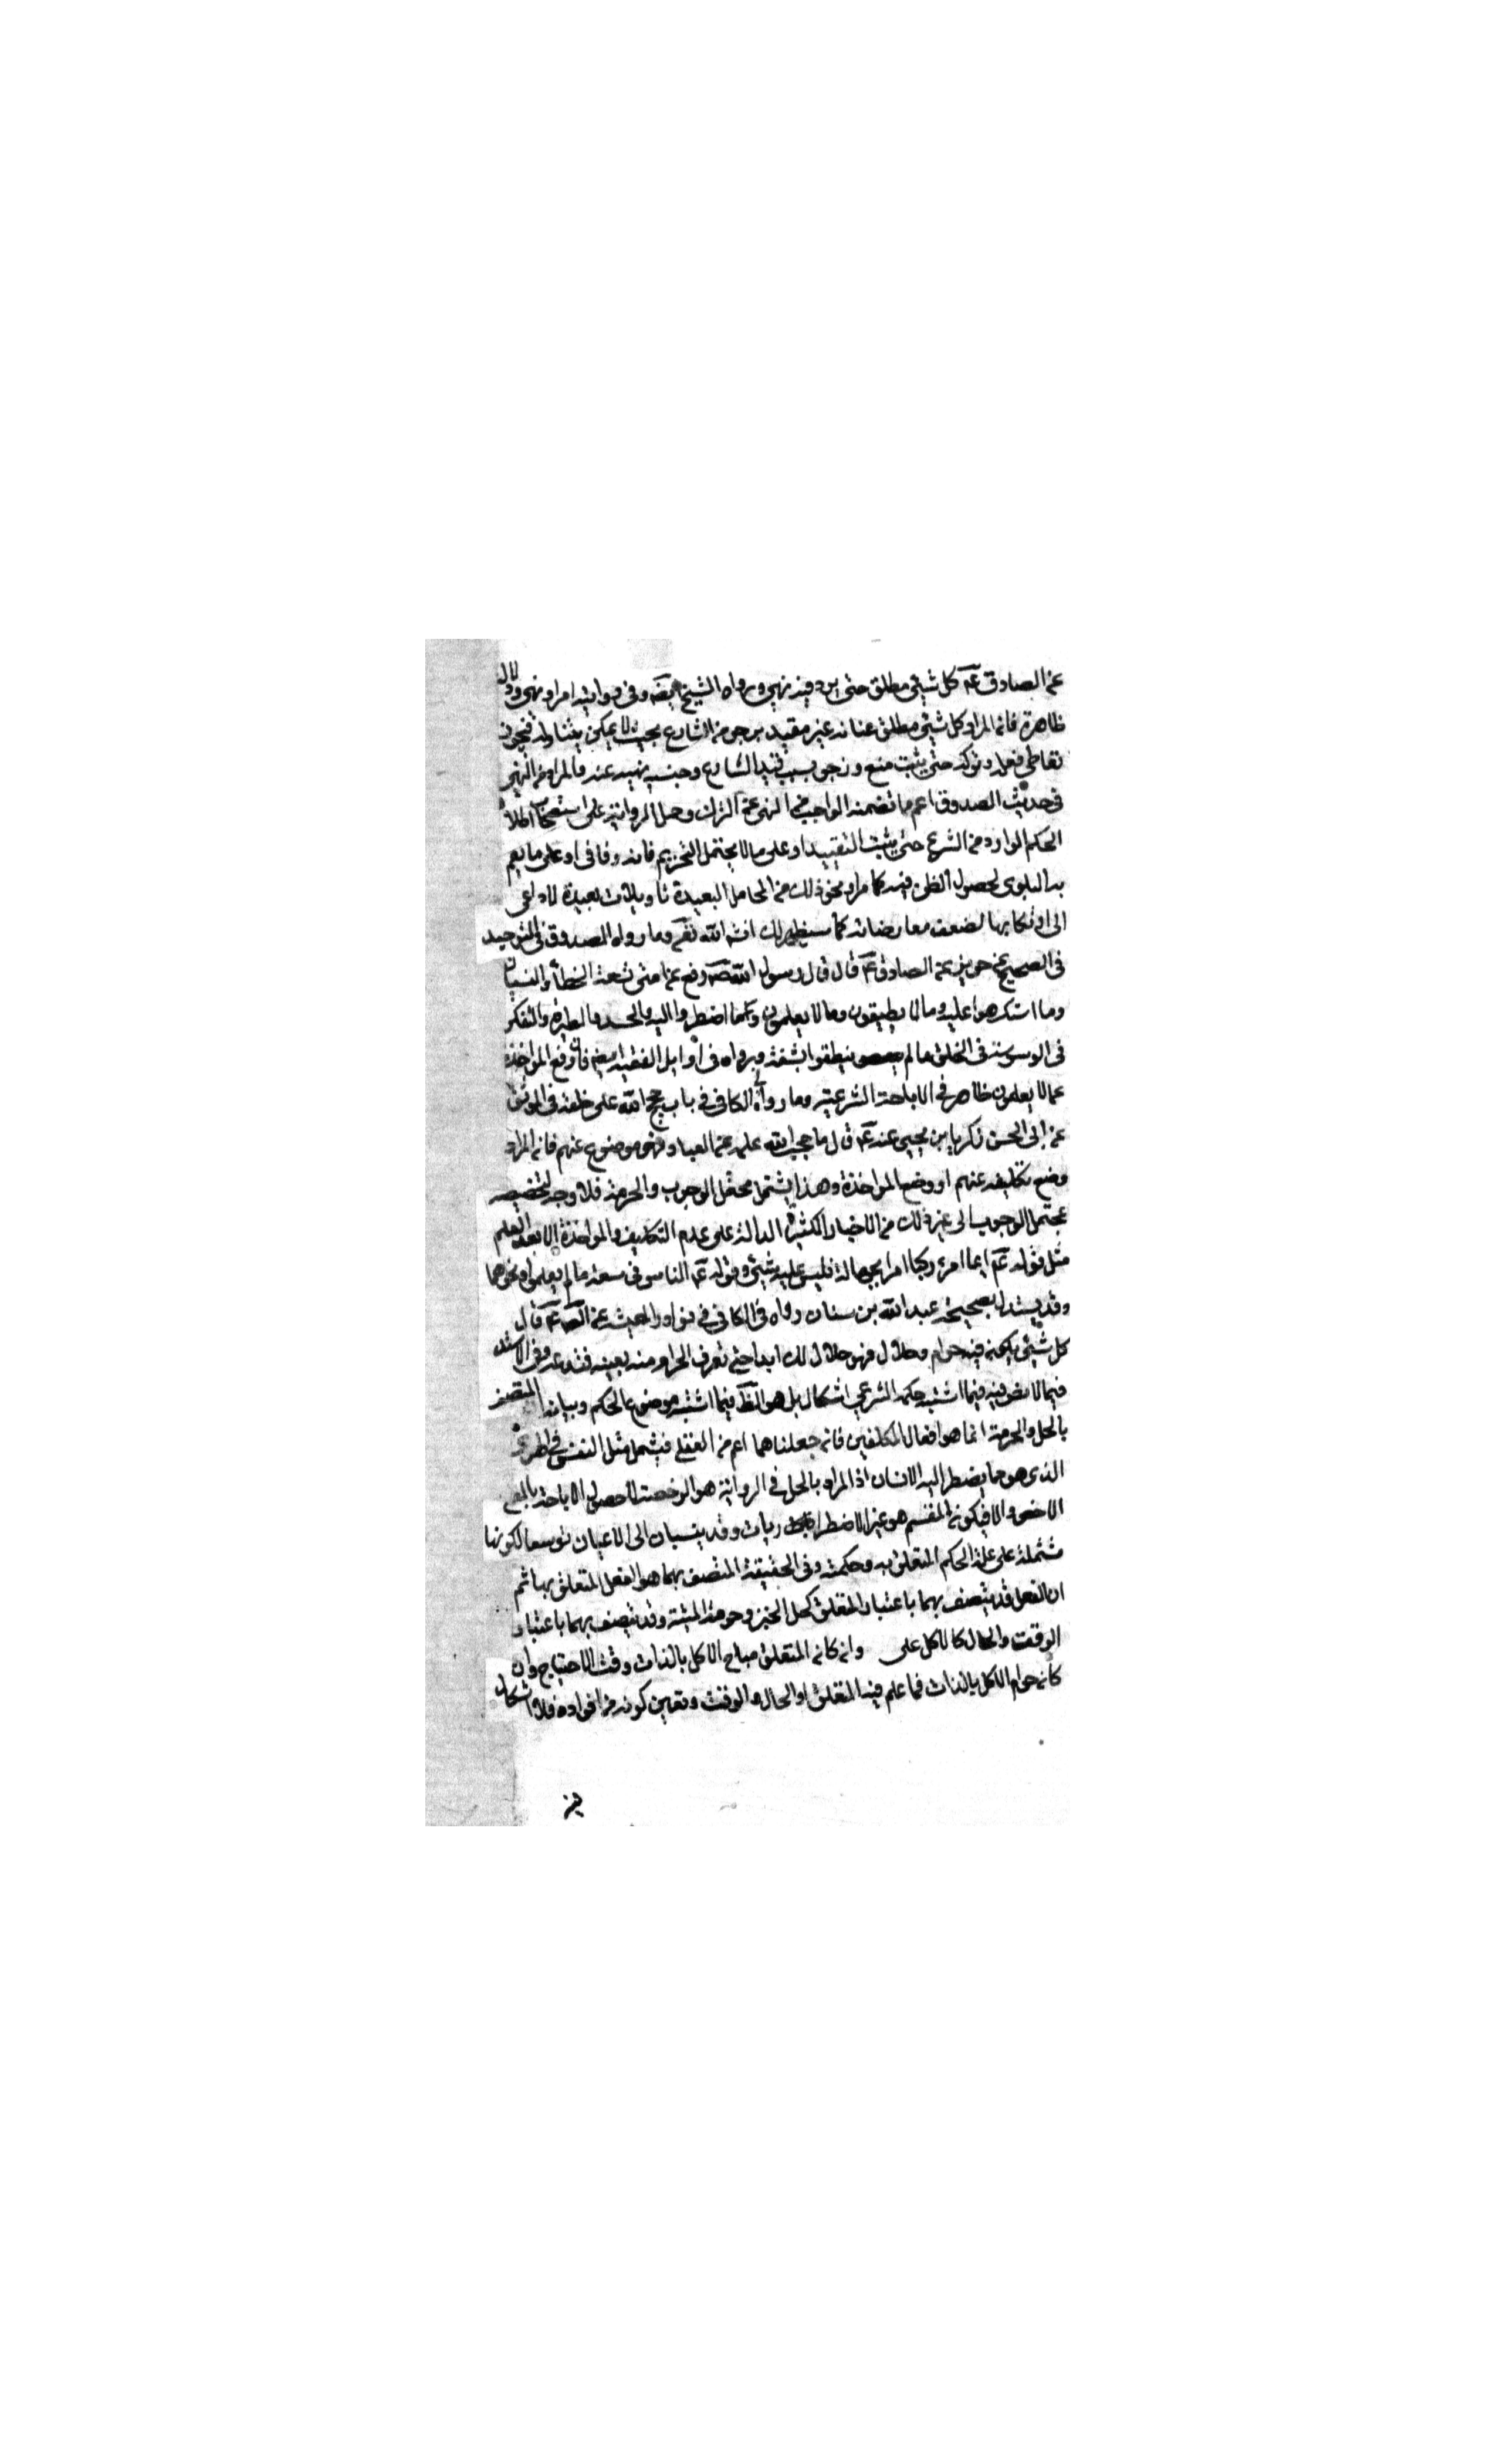 عن الصادق عَ كل شيئ مطلق حتى يرد فيه نهي ورواه الشيخ ايضَ وفي روايته امر او نهي ودلال
ظاهرة فان المراد كل شيئ مطلق عنانه غير مقيد بزجر من الشارع بحيث لا يمكن يتناوله فيجوز
تعاطي فعله وتركه حتى يثبت منع وزجر بسبب تقييد الشارع وحبسه بنهيه عنه فالمراد من النهي
في حديث الصدوق اعم مما تضمنه الواجب من النهي عن الترك وحمل الرواية على استصحاب اطلاق
الحكم الوارد من الشرع حتى يثبت التقييد او على ما لا يحتمل التحريم فانه وفاقي او على ما يعم
به البلوى لحصول الظن فيه كما مر او نحو ذلك من المحامل البعيدة تاويلات بعيدة لا داعي
الى ارتكابها لضعف معارضاته كما سيظهر لك انشَ الله تعَ وما رواه الصدوق في التوحيد
في الصحيح عن حريز عن الصادق عَ قال قال رسول الله صَ رفع عن امتي تسعة الخطأ والنسيان
وما استكرهوا عليه وما لا يطيقون وما لا يعلمون وما اضطروا اليه والحسد والطيرة والتفكر
في الوسوسة في الخلق ما لم ينطقوا بشفة ورواه في اوايل الفقيه ايضَ فان رفع المواخذة
عما لا يعلمون ظاهر في الاباحة الشرعية وما رواه الكافي في باب حجج الله على خلقه في الموثق
عن ابي الحسن زكريا بن يحيى عنه عَ قال ما حجب الله علمه عن العباد فهو موضوع عنهم فان المراد
وضع تكليفه عنهم او وضع المواخذة وهذا يشتمل محتمل الوجوب والحرمة فلا وجه لتخصيصه
بمحتمل الوجوب الى غير ذلك من الاخبار الكثيرة الدالة على عدم التكليف والمواخذة الا بعد العلم
مثل قوله عَ ايما امرئ ركب امرا بجهالة فليس عليه شيئ وقوله عَ الناس في سعة ما لم يعلموا ونحوهما
وقد يستدل بصحيحة عبد الله بن سنان رواه في الكافي في نوادر المعيشة عن الصَ عَ قال
كل شيئ يكون فيه حرام وحلال فهو حلال لك ابدا حتى تعرف الحرام منه بعينه فتدعه وفي الاستدلال
فيما لا نص فيه فيما اشتبه حكمه الشرعي اشكال بل هو الظَ فيما اشتبه موضوع الحكم وبيانه المتصف
بالحل والحرمة انما هو افعال المكلفين فان جعلناهما اعم من العقلي فيشمل مثل التنفس في
الذي هو مما يضطر اليه الانسان اذ المراد بالحل في الرواية هو الرخصة لا حصول الاباحة بالمعنى
الاخص والا فيكون المقسم هو غير الاضطراريات وقد ينسبان الى الاعيان توسعا لكونها
مشتملة على علة الحكم المتعلق به وحكمته وفي الحقيقة المتصف بهما هو الفعل المتعلق بها ثم
ان الفعل قد يتصف بهما باعتبار المتعلق كحل الخبز وحرمة الميتة وقد يتصف بهما باعتبار
الوقت والحال كالاكل على وان كان المتعلق مباح الاكل بالذات وقت الاحتياج وان
كان حرام الاكل بالذات فما علم فيه المتعلق او الحال والوقت وتعين كونه من افراده فلا اشكال
فيه